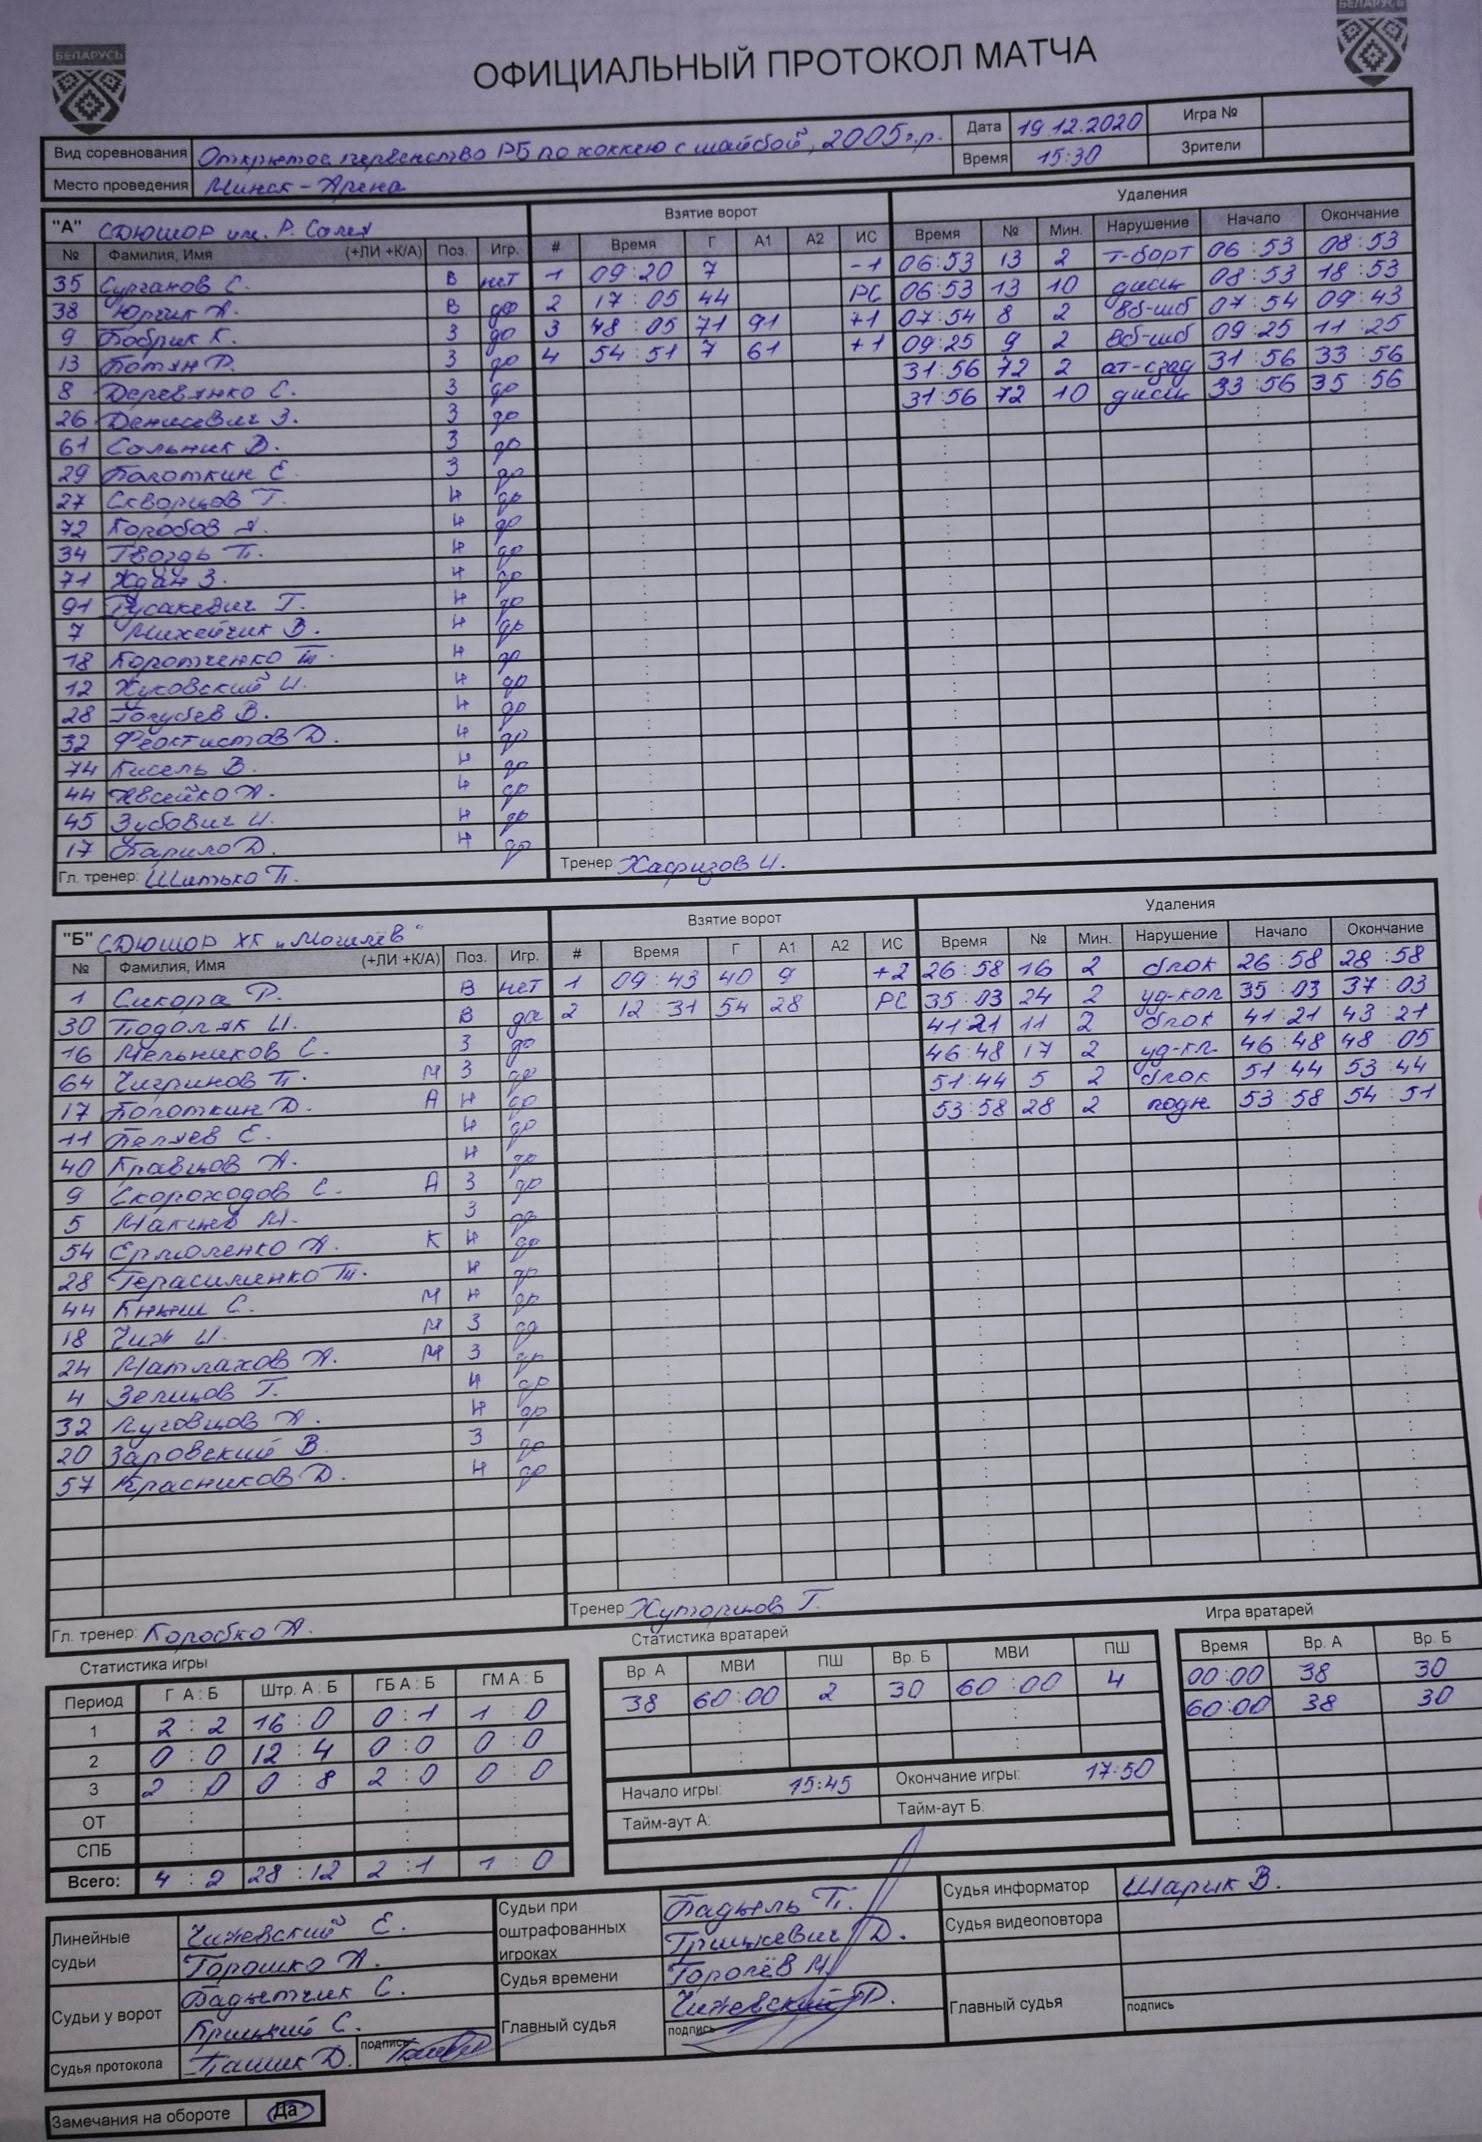 БЕЛАРУСЬ
БЕЛАРУСЬ
ОФИЦИАЛЬНЫЙ ПРОТОКОЛ МАТЧА
Вид соревнования Открытое первенство РБ по хоккею с шайбой, 2005 г.р. Дата 19.12.2020 Игра №
Место проведения Минск-Арена Время 15:30 Зрители
"А" СДЮШОР им. Р. Салея Взятие ворот Удаления
№ Фамилия, Имя (+ЛИ +К/А) Поз. Игр. # Время Г А1 А2 ИС Время № Мин. Нарушение Начало Окончание
35 Сурганов С. В нет 1 09:20 7 -1 06:53 13 2 т-борт 06:53 08:53
38 Юрчик А. В да 2 17:05 44 РС 06:53 13 10 дисц 08:53 18:53
9 Бобрик К. З да 3 48:05 71 91 +1 07:54 8 2 вб-шб 07:54 09:43
13 Ботян Р. З да 4 54:51 7 61 +1 09:25 9 2 вб-шб 09:25 11:25
8 Деревянко С. З да 31:56 72 2 ат-сзад 31:56 33:56
26 Денисевич З. З да 31:56 72 10 дисц 33:56 35:56
61 Сальник Д. З да
29 Болоткин Е. З да
27 Скворцов Г. Н да
72 Коробов А. Н да
34 Гвоздь П. Н да
71 Ждан З. Н да
91 Русакевич Г. Н да
7 Михейчик В. Н да
18 Коротченко Т. Н да
12 Жуковский И. Н да
28 Голубев В. Н да
32 Феоктистов Д. Н да
74 Кисель В. Н да
44 Авсейко А. Н да
45 Зубович И. Н да
17 Барило Д. Н да
Гл. тренер: Шитько П. Тренер Хафизов И.
"Б" СДЮШОР ХК "Могилёв" Взятие ворот Удаления
№ Фамилия, Имя (+ЛИ +К/А) Поз. Игр. # Время Г А1 А2 ИС Время № Мин. Нарушение Начало Окончание
1 Сикора Р. В нет 1 09:43 40 9 +2 26:58 16 2 блок 26:58 28:58
30 Подоляк И. В да 2 12:31 54 28 РС 35:03 24 2 уд-кол 35:03 37:03
16 Мельников С. З да 41:21 11 2 блок 41:21 43:21
64 Чигринов П. М З да 46:48 17 2 уд-кл. 46:48 48:05
17 Болоткин Д. А Н да 51:44 5 2 блок 51:44 53:44
11 Беляев Е. Н да 53:58 28 2 подн 53:58 54:51
40 Кравцов А. Н да
9 Скороходов С. А З да
5 М. З да
54 Ермоленко А. К Н да
28 Герасименко Т. Н да
44 Книш С. М Н да
18 Чиж И. М З да
24 Матлахов А. М З да
4 Зелицов Г. Н да
32 Луговцов А. Н да
20 Заровский В. З да
57 Красников Д. Н да
Гл. тренер: Коробко А. Тренер Хуторцов Г.
Статистика игры Статистика вратарей Игра вратарей
Период Г А : Б Штр. А : Б ГБ А : Б ГМ А : Б Вр. А МВИ ПШ Вр. Б МВИ ПШ Время Вр. А Вр. Б
1 2 : 2 16 : 0 0 : 1 1 : 0 38 60:00 2 30 60:00 4 00:00 38 30
2 0 : 0 12 : 4 0 : 0 0 : 0 60:00 38 30
3 2 : 0 0 : 8 2 : 0 0 : 0 Начало игры: 15:45 Окончание игры: 17:50
ОТ Тайм-аут А: Тайм-аут Б:
СПБ
Всего: 4 : 2 28 : 12 2 : 1 1 : 0
Линейные судьи Чижевский Е. Горошко А.
Судьи у ворот Бадытчик С. Крицкий С.
Судья протокола Пашик Д. подпись
Судьи при оштрафованных игроках Бадыль П. Грицкевич Д.
Судья времени Горолёв М.
Главный судья Чижевский П. подпись
Судья информатор Шарик В.
Судья видеоповтора
Главный судья подпись
Замечания на обороте Да